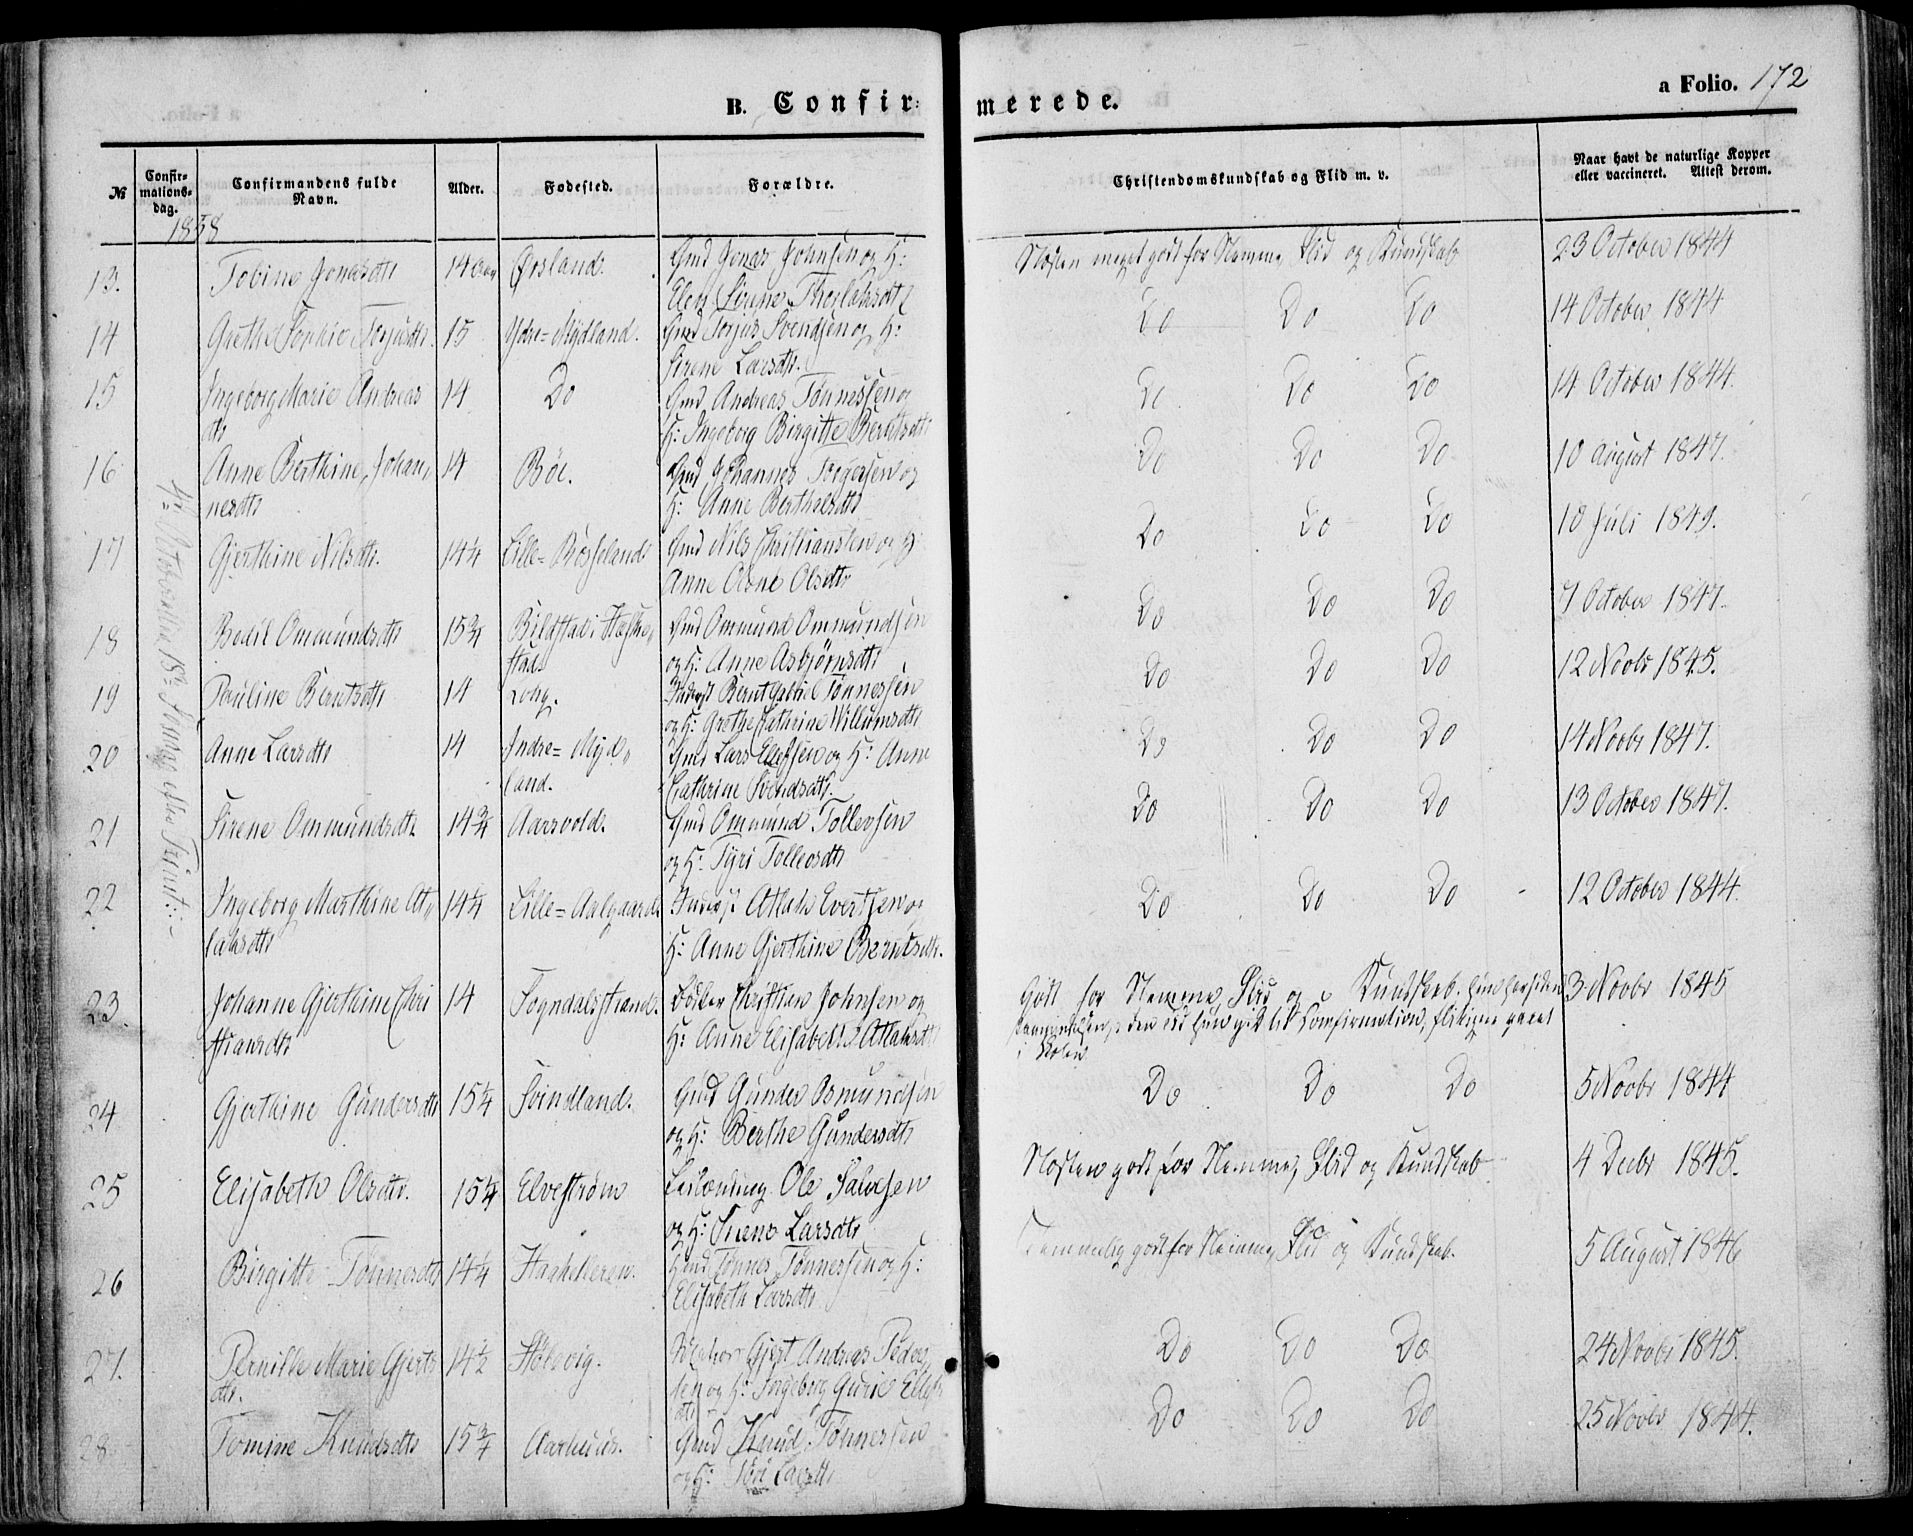 B. Confir=
merede.
a Folio. 172
№
Confir-
mations-
dag.
Confirmandens fulde
Navn.
Alder.
Fødested.
Forældre.
Christendomskundskab og Flid m. v.
Naar havt de naturlige Kopper
eller vaccineret. Attest derom.
1858
4de October 18de Søndag efter Trinit:
13. Tobine Jonasdtr 14 Ørsland. Gmd Jonas Johnsen og H:
Elen Sirene Thorlaksdtr
Næsten meget godt for Nemme, Flid og Kundskab 23 October 1844
14 Grethe Sophie Torjusdtr. 15 Ydre=Mydland. Gmd Torjus Svendsen og H:
Sirene Larsdtr.
Do Do Do 14 October 1844
15 Ingeborg Marie Andreas 14 Do Gmd Andreas Tønnessen og
dtr H: Ingeborg Birgitte Berntsdtr
Do Do Do 14 October 1844.
16 Anne Berthine Johan, 14 Bøe. Gmd Johannes Torgersen og
nesdtr H: Anne Bertheladtr
Do Do Do 10 August 1847.
17 Gjerthine Nilsdtr. 14¼ Lille=Røsseland Gmd Nils Christiansen og H:
Anne Olene Olsdtr
Do Do Do 18 Juli 1849.
18 Bodil Ommundsdtr 15¾ Bilstad i Heske, Gmd Ommund Ommundsen
stad og H: Anne Asbjørnsdtr
Do Do Do 7 October 1847.
19 Pauline Berntsdtr 14 Log. Inderst Bernt Gabriel Tønnessen
og H: Grethe Cathrine Willumsdtr
Do Do Do 12 Novbr 1845.
20 Anne Larsdtr 14 Indre=Myd, Gmd Lars Ellefsen og H: Anne
land. Cathrine Svendsdtr.
Do Do Do 14 Novbr 1847.
21 Sirene Ommundsdtr. 14¾ Aarrvold. Gmd Ommund Tollevsen
og H: Tyri Tollevsdtr
Do Do Do 13 October 1847.
22 Ingeborg Marthine At, 14¼ Lille=Aalgaard Inderst Atlak Evertsen og
laksdtr H: Anne Gjerthine Berntsdtr.
Do Do Do 12 October 1844.
23. Johanne Gjerthine Chri 14 Sogndalsstrand. Bødker Christian Johnsen og
stiansdtr H: Anne Elisabeth Atlaksdtr
Godt for Nemme, Flid og Kundskab. 3 Novbr 1845
den Tid hun gik til Confirmation, flittigere været
i Skolen
24 Gjerthine Gundersdtr 15¼ Svindland. Gmd Gunder Osmundsen
og H: Berthe Gundersdtr
Do Do Do 5 Novbr 1844
25 Elisabeth Olsdtr. 15¼ Elvestrøm Ole Salvesen
og H: Sirene Larsdtr
Næsten godt for Nemme, Flid og Kundskab 4 Decbr 1845.
26 Birgitte Tønnesdtr 14¼ Haakelleren. Gmd Tønnes Tønnessen og H:
Elisabeth Larsdtr
Temmelig godt for Nemme, Flid og Kundskab. 5 August 1846
27. Pernille Marie Gjerts 14½ Hølovig. Gjert Andreas Peder,
dtr. sen og H: Ingeborg Gurie Ellefs
dtr
Do Do Do 24 Novbr 1845.
28 Tomine Knudsdtr 15¾ Aarhuus. Gmd Knud Tønnessen
og H: Siri Larsdtr
Do Do Do 25 Novbr 1844.